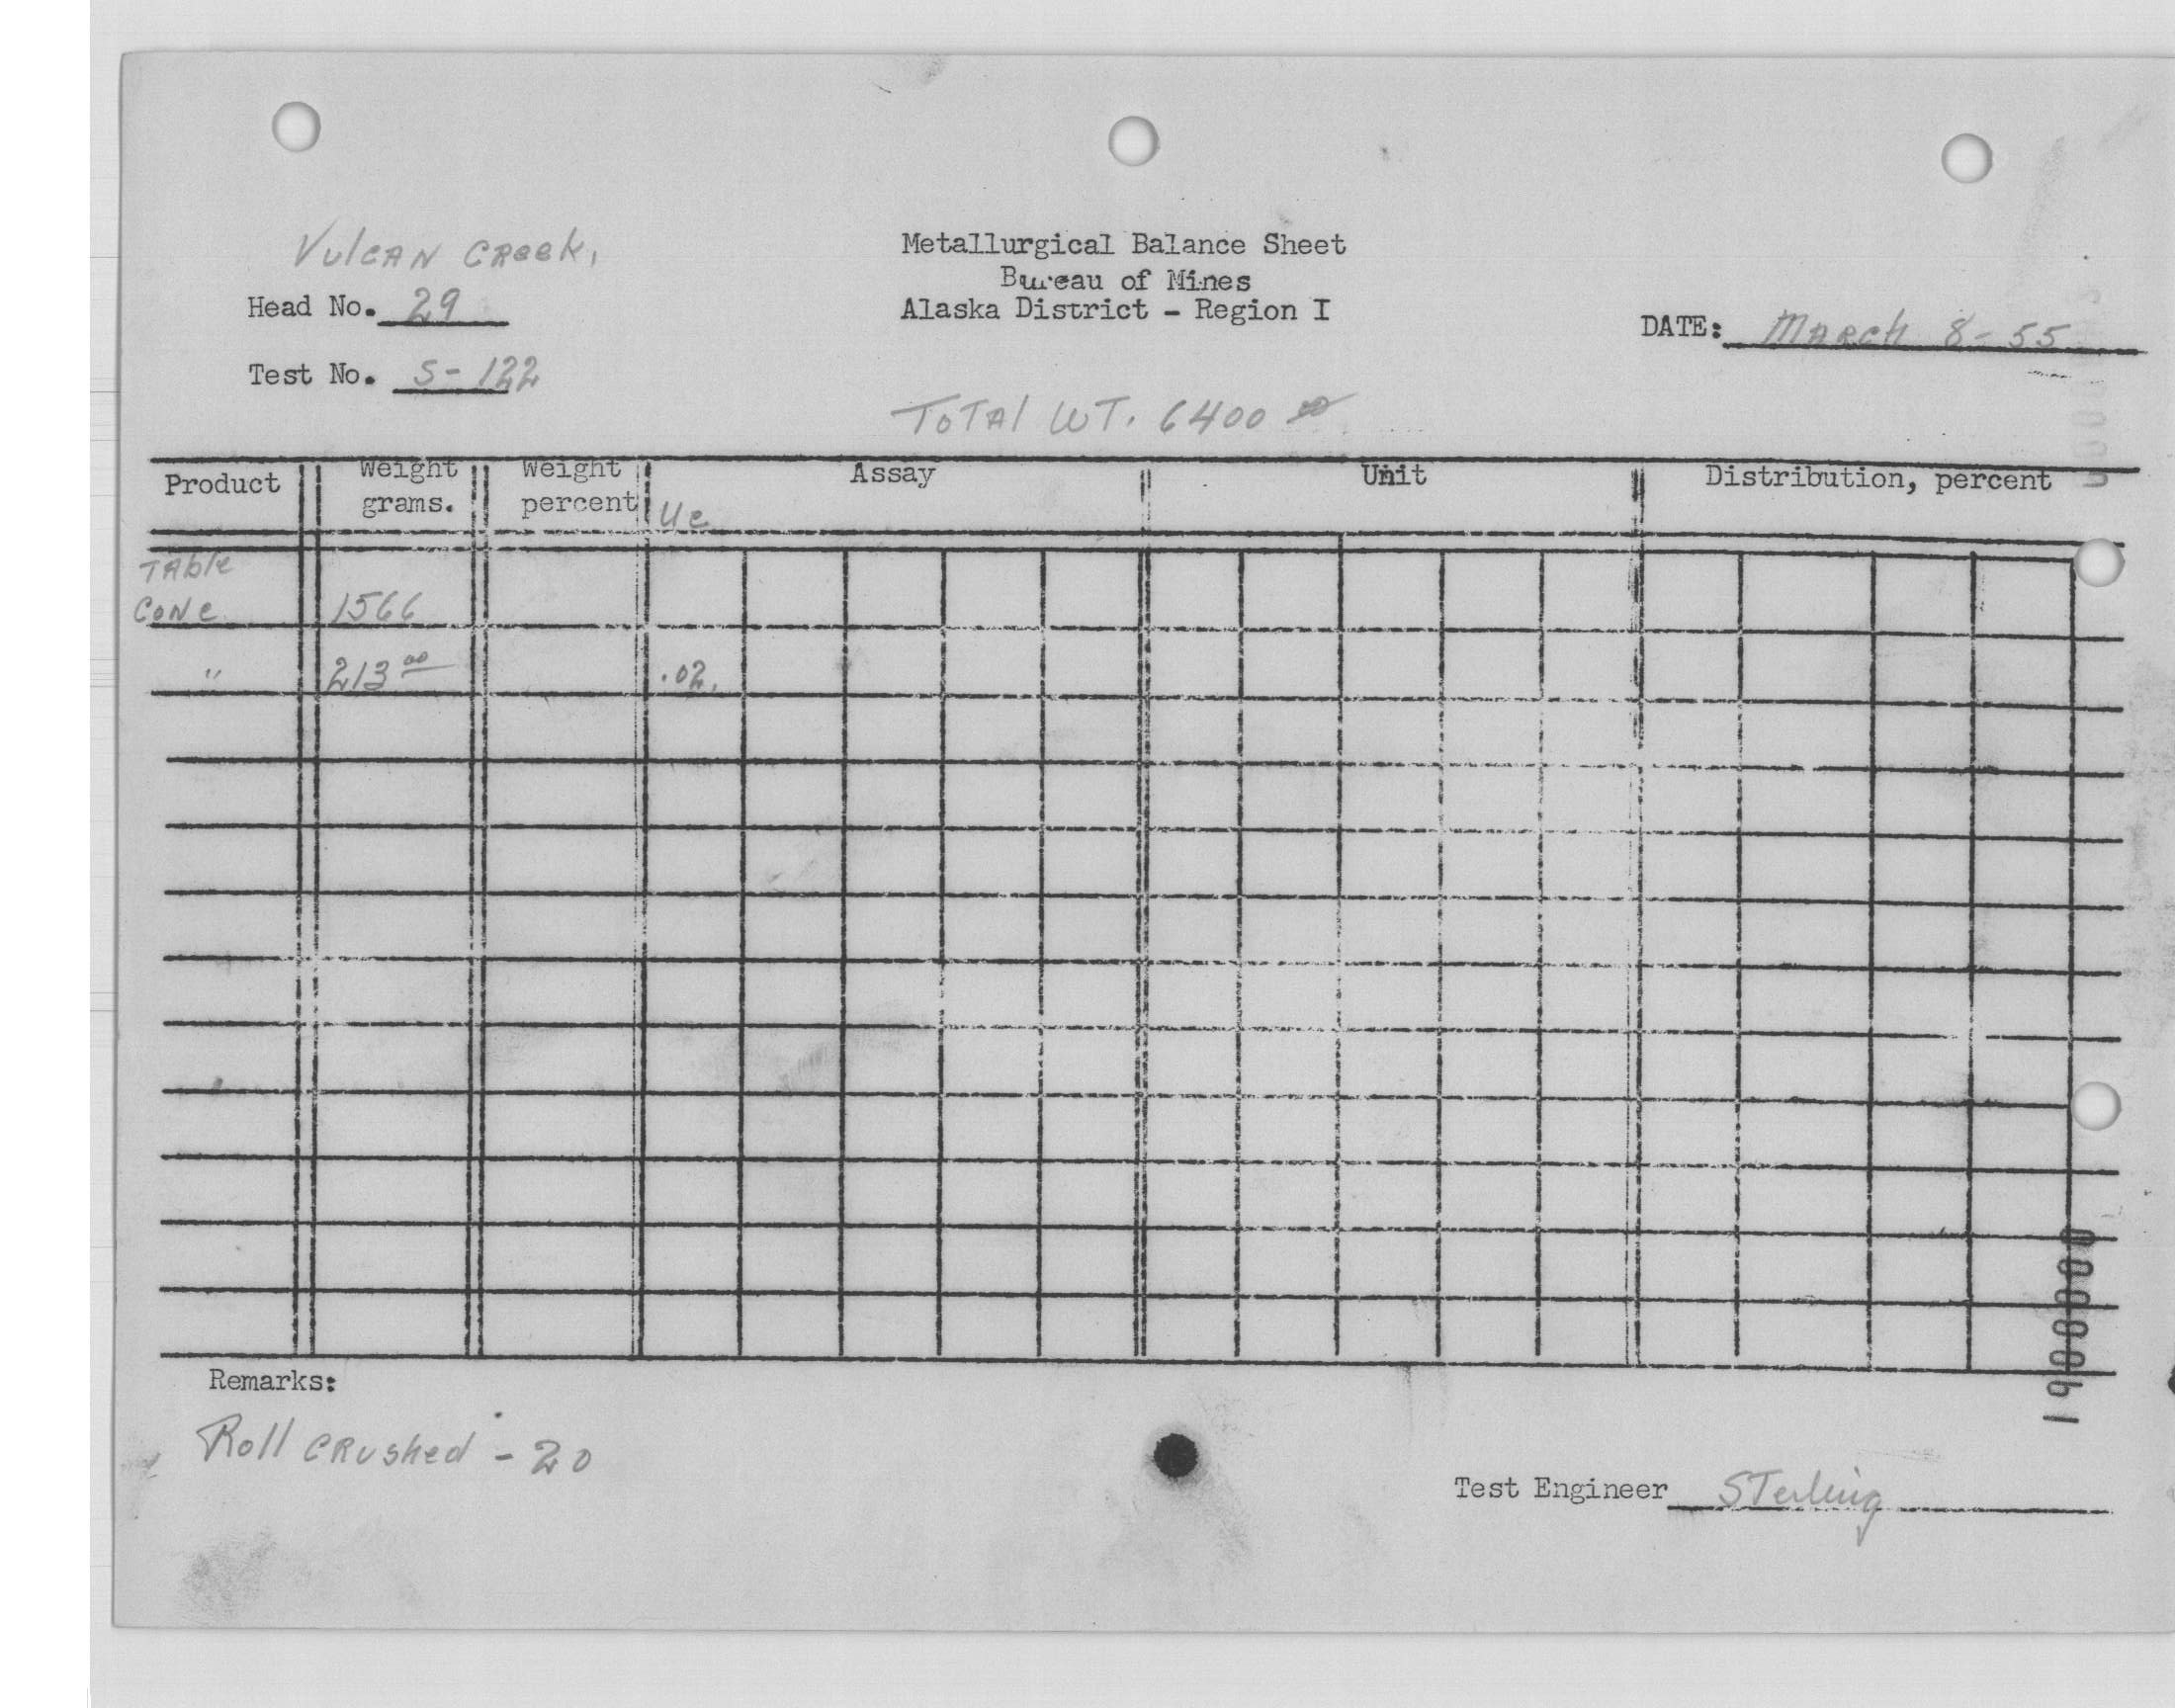 Vulcan Creek,
Metallurgical Balance Sheet
Bureau of Mines
Alaska District - Region I
Head No. 29
DATE: March 8-55
Test No. S-122
Total WT. 6400
Product
Weight grams.
Weight percent
Assay
Unit
Distribution, percent
Ue
Table
Conc 1566
" 213 00 .02
Remarks:
Roll crushed - 20
Test Engineer Sterling